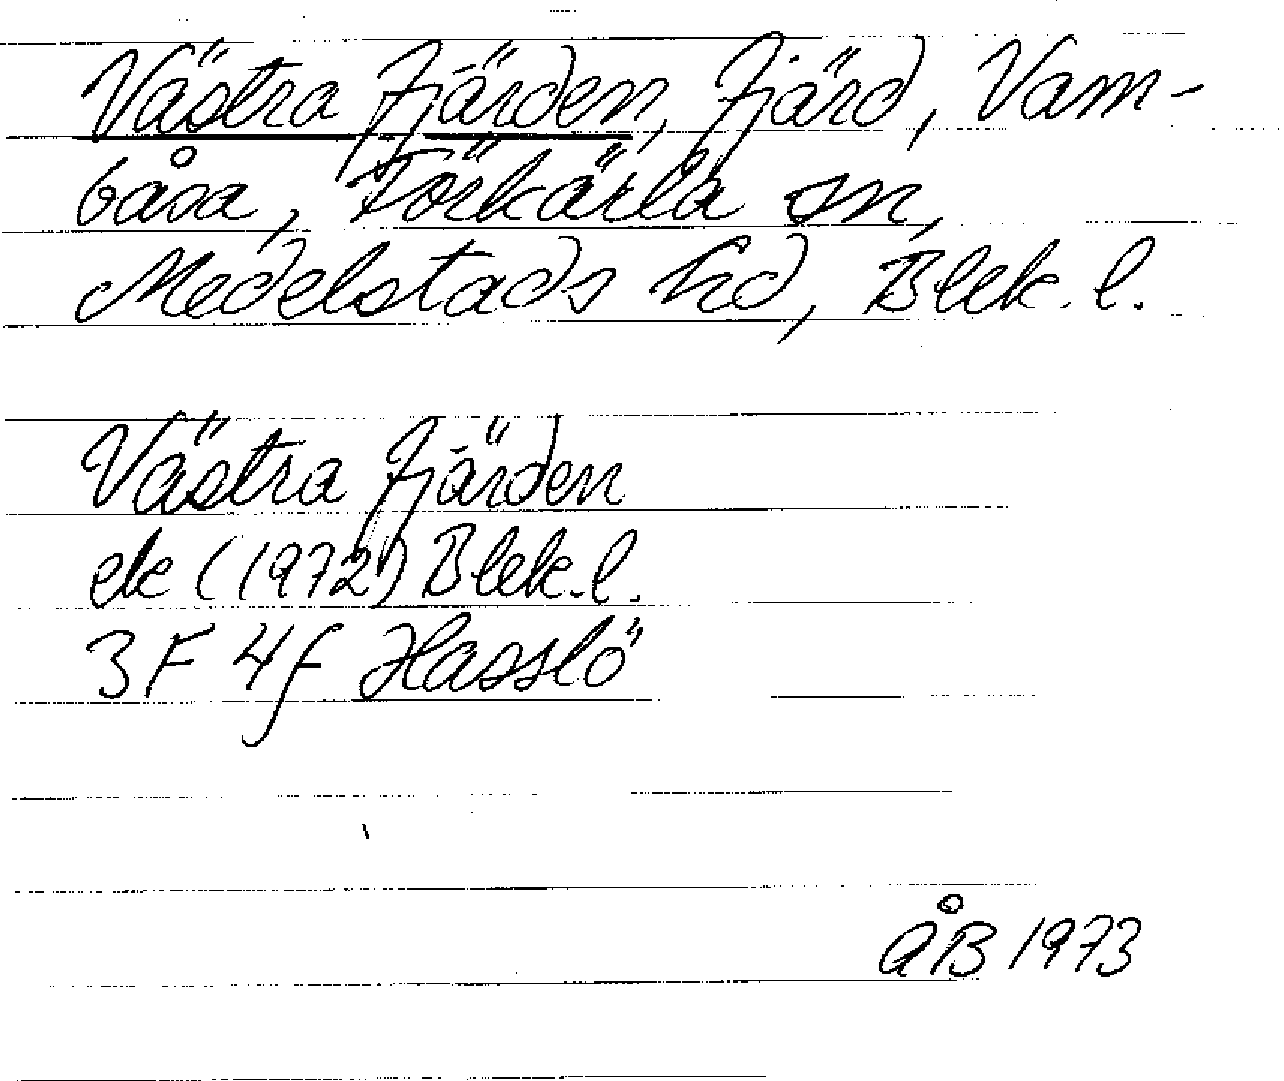 Västra Fjärden, Fjärd, Vam-
båsa, Förkärla sn,
Medelstads hd, Blek. l.
Västra Fjärden
ek (1972) Blek. l.
3F 4f Hasslö
ÅB 1973